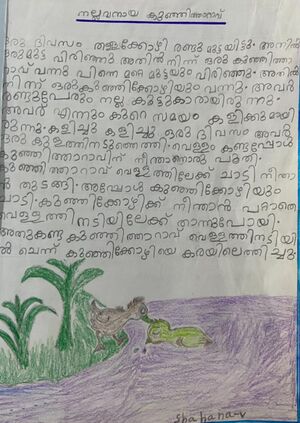 നല്ലവനായ കുഞ്ഞിത്താറാവ്
ഒരു ദിവസം തള്ളക്കോഴി രണ്ടു മുട്ടയിട്ടു. അതിൽ
ഒരുമുട്ട വിരിഞ്ഞു അതിൽ നിന്ന് ഒരു കുഞ്ഞിത്താ
റാവ് വന്നു പിന്നെ മറ്റെ മുട്ടയും വിരിഞ്ഞു. അതിൽ
നിന്ന് ഒരു കുഞ്ഞിക്കോഴിയും വന്നു. അവർ
രണ്ടുപേരും നല്ല കൂട്ടുകാരായിരുന്നു.
അവർ എന്നും കുറെ സമയം കളിക്കുമായി
രുന്നു. കളിച്ചു കളിച്ചു ഒരു ദിവസം അവർ
ഒരു കുളത്തിനടുത്തെത്തി. വെള്ളം കണ്ടപ്പോൾ
കുഞ്ഞിത്താറാവിന് നീന്താനുൽ പൂതി.
കുഞ്ഞിത്താറാവ് വെള്ളത്തിലേക്ക് ചാടി നീന്താ
ൻ തുടങ്ങി. അപ്പോൾ കുഞ്ഞിക്കോഴിയും
ചാടി. കുഞ്ഞിക്കോഴിക്ക് നീന്താൻ പറ്റാതെ
വെള്ളത്തി നടിയിലേക്ക് താന്നുപോയി.
അതുകണ്ട കുഞ്ഞിത്താറാവ് വെള്ളത്തിനടിയി
ൽ ചെന്ന് കുഞ്ഞിക്കോഴിയെ കരയിലെത്തിച്ചു.
shahana.v